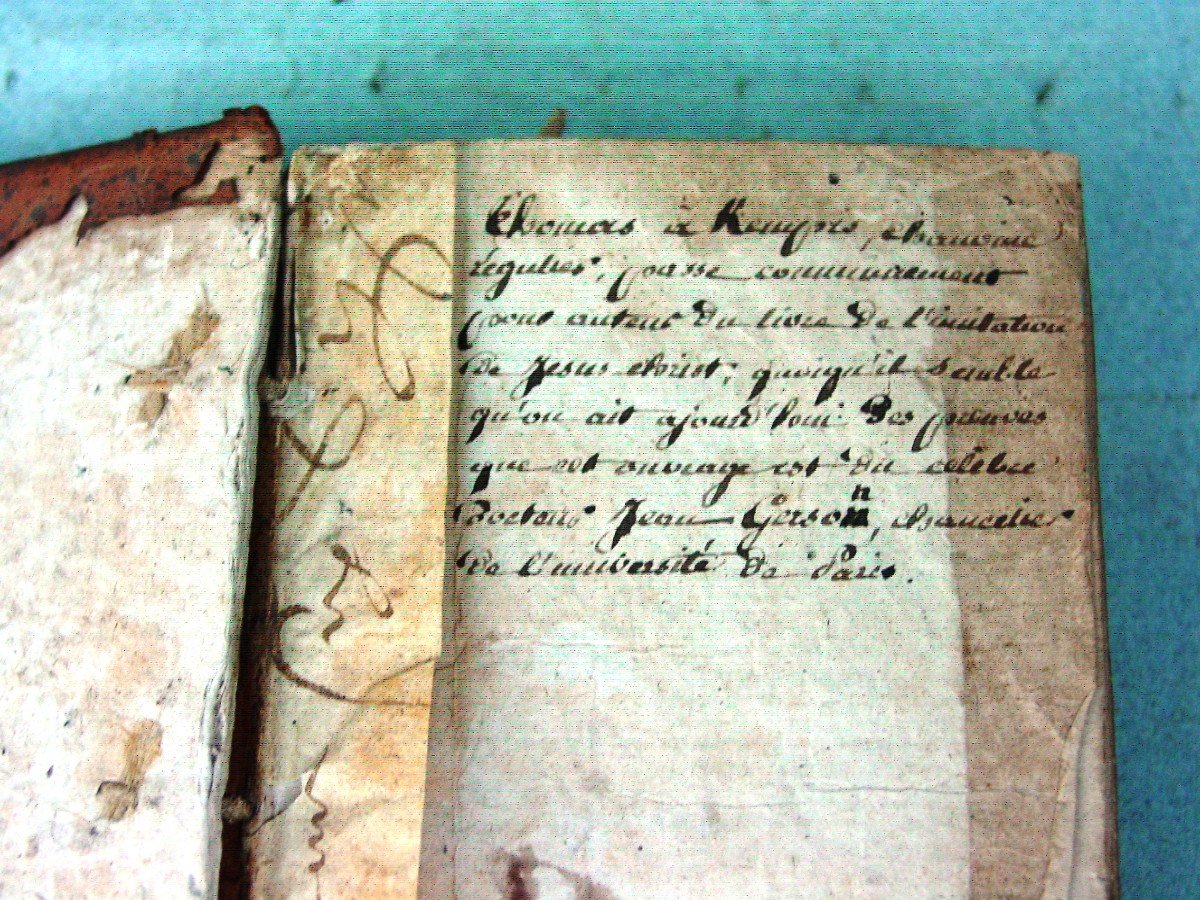 Thomas à Kempis, chanoine
régulier, passe communement
pour auteur du livre de l'imitation
de Jesus christ, quoiqu'il semble
qu'on ait ajourd'hui des preuves
que cet ouvrage est du célèbre
Docteur Jean Gerson, chancelier
de l'université de Paris.